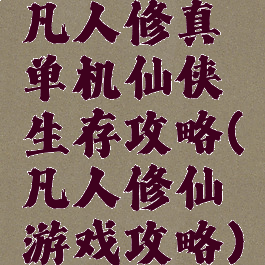 凡人修真
单机仙侠
生存攻略(
凡人修仙
游戏攻略)